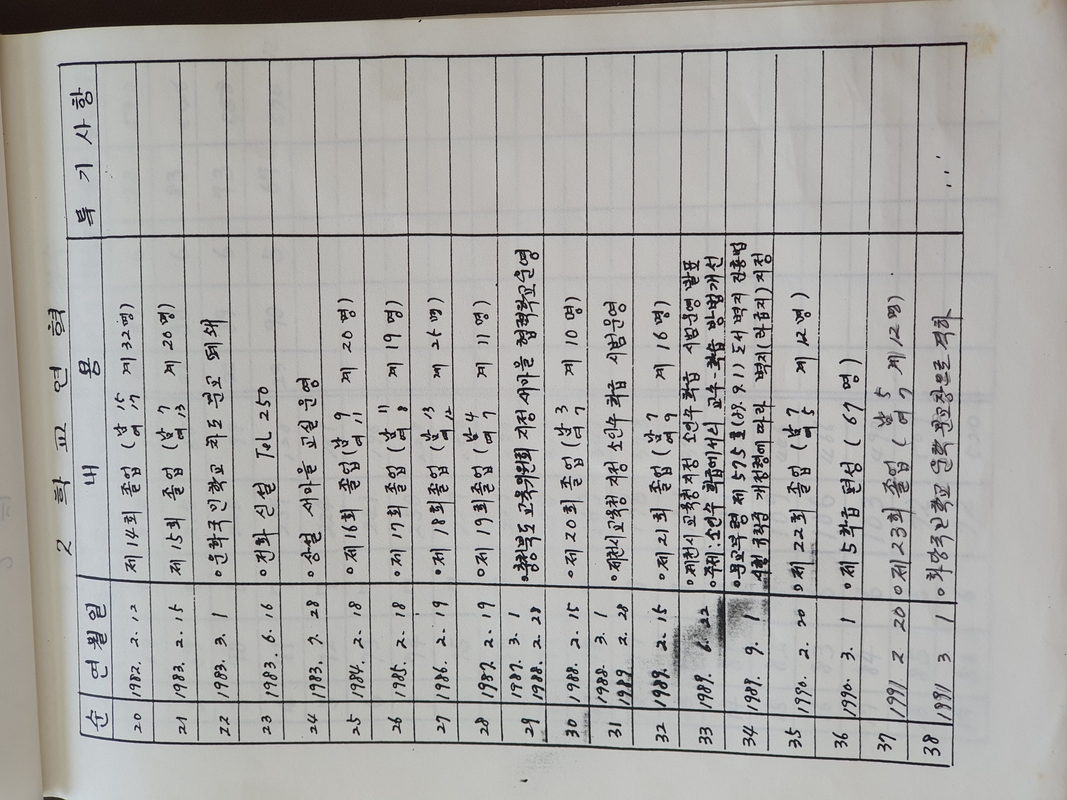 2 학교연혁
순 연월일 내용 특기사항
20 1982. 2. 12 제14회 졸업 (남 15 여 17 계 32명)
21 1983. 2. 15 제15회 졸업 (남 7 여 13 계 20명)
22 1983. 3. 1 ㅇ운학국민학교 치도분교 폐쇄
23 1983. 6. 16 ㅇ전화 신설 Tel 250
24 1983. 7. 28 ㅇ상설 새마을 교실 운영
25 1984. 2. 18 ㅇ제16회 졸업 (남 9 여 11 계 20명)
26 1985. 2. 18 ㅇ제17회 졸업 (남 11 여 8 계 19명)
27 1986. 2. 19 ㅇ제18회 졸업 (남 13 여 12 계 25명)
28 1987. 2. 19 ㅇ제19회 졸업 (남 4 여 7 계 11명)
29 1987. 3. 1 ㅇ충청북도 교육위원회 지정 새마을 협력학교 운영
1988. 2. 28
30 1988. 2. 15 ㅇ제20회 졸업 (남 3 여 7 계 10명)
31 1988. 3. 1 ㅇ제천시교육청 지정 소인수 학급 시범운영
1989 2. 28
32 1989. 2. 15 ㅇ제21회 졸업 (남 7 여 9 계 16명)
33 1989. 6. 22 ㅇ제천시 교육청 지정 소인수 학급 시범운영 발표
ㅇ주제: 소인수 학급에서의 교수-학습 방법 개선
34 1989. 9. 1 ㅇ문교부령 제575호 (89. 9. 1) 도서 벽지 진흥법
시행 규칙중 개정령에 따라 벽지( 급지) 지정
35 1990. 2. 20 ㅇ제22회 졸업 (남 7 여 5 계 12명)
36 1990. 3. 1 ㅇ제5학급 편성 (67명)
37 1991 2 20 ㅇ제23회 졸업 (남 5 여 7 계 12명)
38 1991 3 1 ㅇ화당국민학교 운학분교장으로 격하